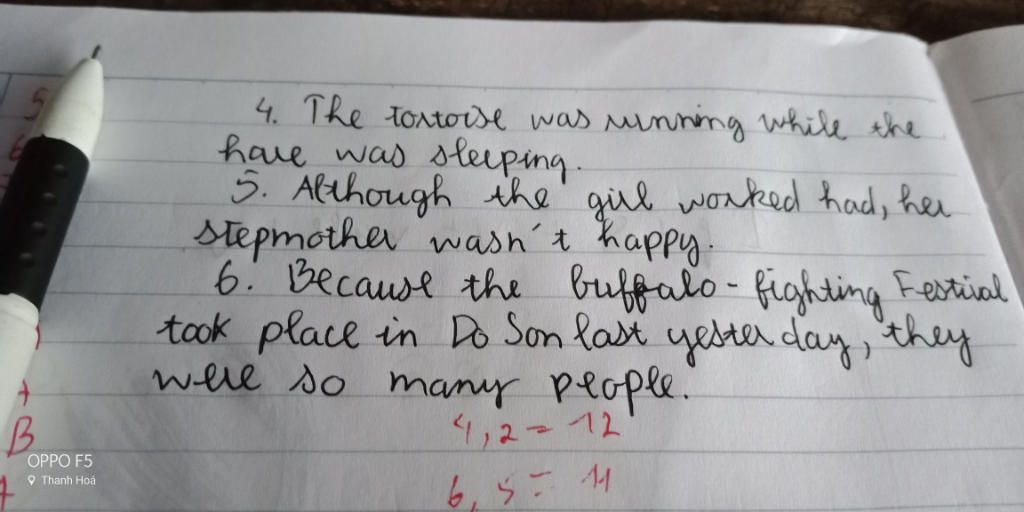 4. The tortoise was running while the
hare was sleeping.
5. Although the girl worked had, her
stepmother wasn't happy.
6. Because the buffalo-fighting Festival
took place in Do Son last yesterday, they
were so many people.
4,2 = 12
6,5 = 11
B
OPPO F5
Thanh Hoá